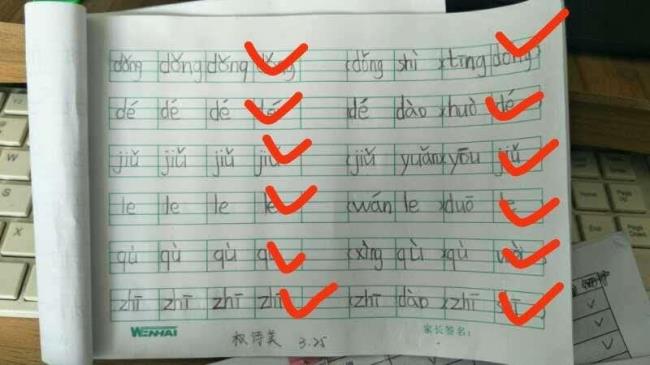 dǒng dǒng dǒng dǒng (dǒng shì xtīng dǒng)
dé dé dé dé (dé dào xhuò dé)
jiǔ jiǔ jiǔ jiǔ (jiǔ yuǎn xyǒu jiǔ)
le le le le (wán le xduō le)
qù qù qù qù (xìng qù xqù
zhī zhī zhī zhī (zhī dào xzhī
WENHAI 3.25 家长签名: